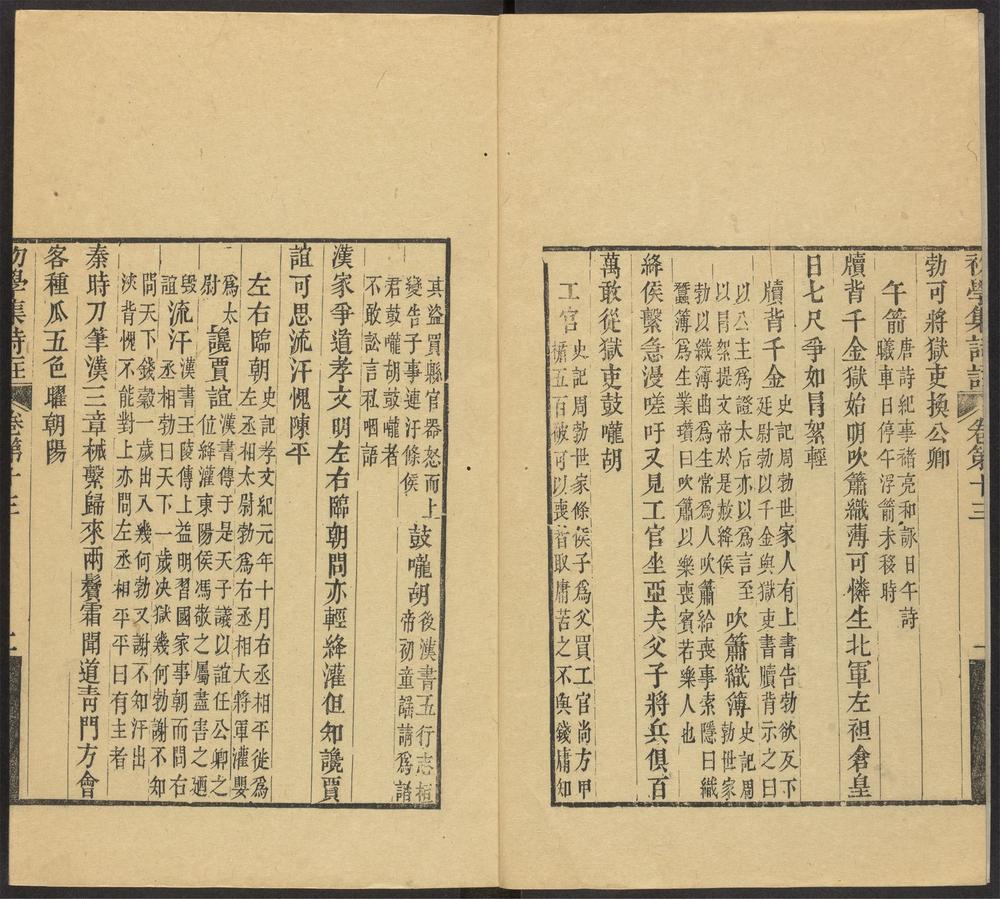 初學集詩註 卷第十三 一
勃可將獄吏換公卿
午箭 唐詩紀事禇亮和詠日午詩
曦車日停午浮箭未移時
牘背千金獄始明吹簫織薄可憐生北軍左袒倉皇
日七尺爭如冒絮輕
牘背千金 史記周勃世家人有上書告勃欲反下
廷尉勃以千金與獄吏書牘背示之曰
以公主爲證太后亦以爲言至
以冒絮提文帝於是赦絳侯
吹簫織簿 史記周
勃世家
勃以織簿曲爲生常爲人吹簫給喪事索隱曰織
蠶簿爲生業瓚曰吹簫以樂喪賓若樂人也
絳侯繫急漫嗟吁又見工官坐亞夫父子將兵俱百
萬敢從獄吏鼓嚨胡
工官 史記周勃世家條侯子爲父買工官尚方甲
楯五百被可以喪者取庸苦之不與錢庸知
其盜買縣官器怒而上
變告子事連汙條侯
鼓嚨胡 後漢書五行志桓
帝初童謡請爲諸
君鼓嚨胡鼓嚨者
不敢訟言私咽語
漢家爭道孝文明左右臨朝問亦輕絳灌但知讒賈
誼可思流汗愧陳平
左右臨朝 史記孝文紀元年十月右丞相平徙爲
左丞相太尉勃爲右丞相大將軍灌嬰
爲太
尉
讒賈誼 漢書傳于是天子議以誼任公卿之
位絳灌東陽侯馮敬之屬盡害之廼
毀
誼
流汗 漢書王陵傳上益明習國家事朝而問右
丞相勃曰天下一歲決獄幾何勃謝不知
問天下錢穀一歲出入幾何勃又謝不知汗出
浹背愧不能對上亦問左丞相平平曰有主者
秦時刀筆漢三章械繫歸來兩鬢霜聞道靑門方會
客種瓜五色曜朝陽
初學集詩註 卷第十三